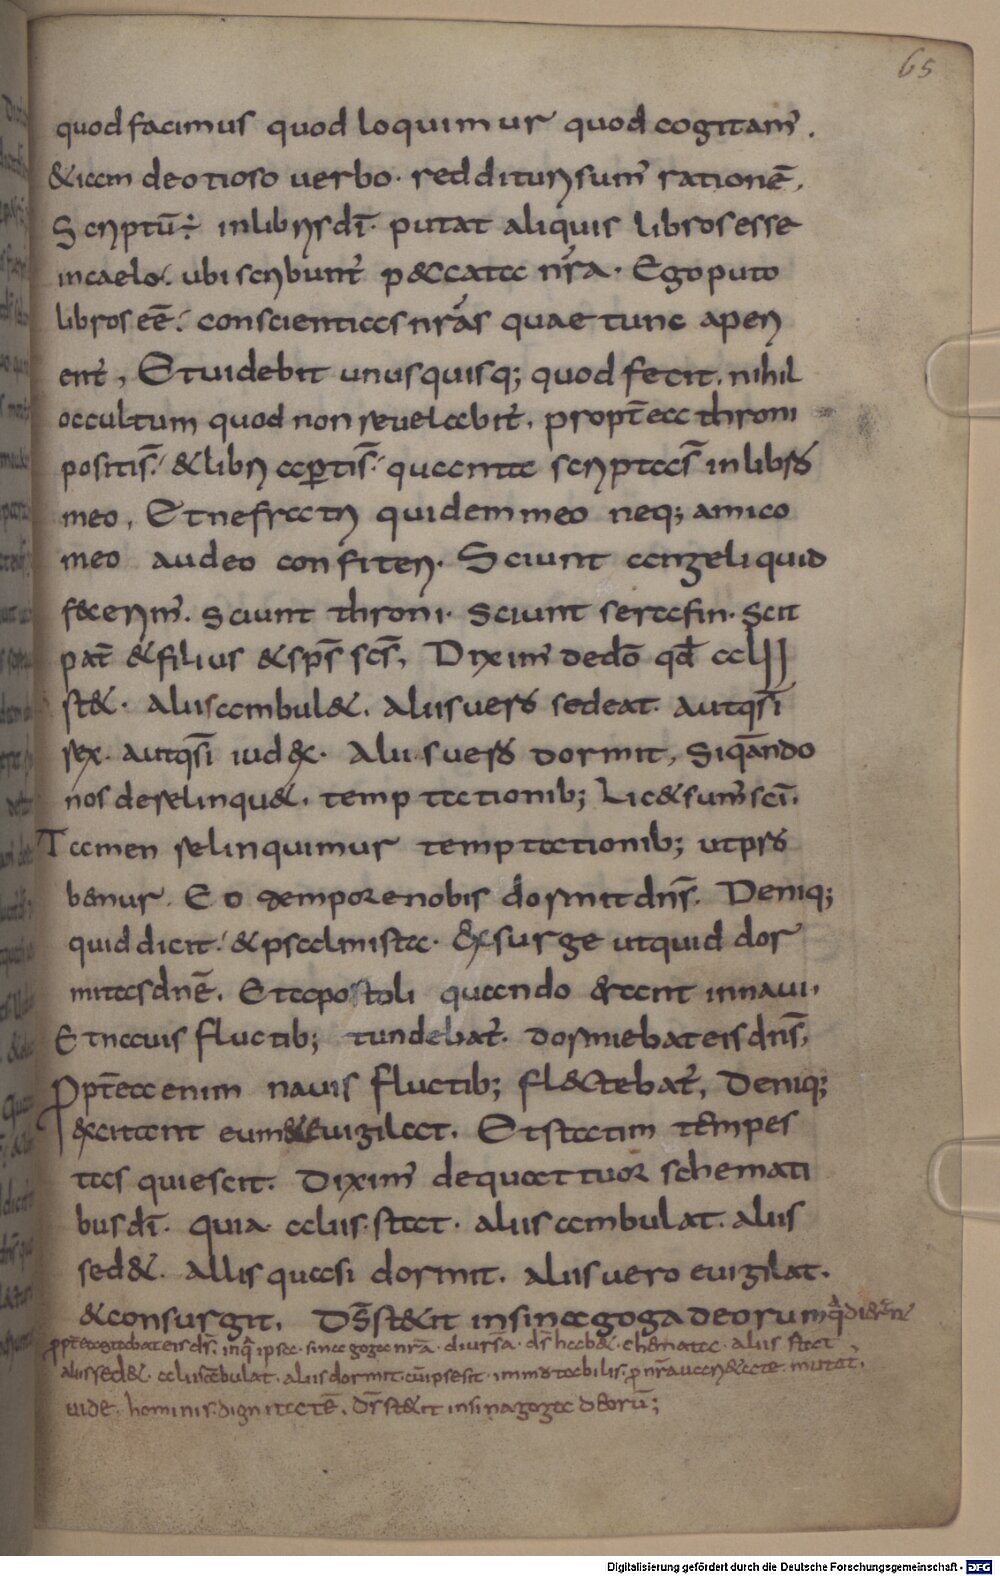 65
quod facimus quod loquimur quod cogitam̄.
&iam deotioso uerbo· redditurisum̄ rationē,
Scriptū÷ inlibrisdī· putat aliquis librosesse
incaelo. ubiscribunt̄ p&cata nr̄a· Egoputo
libroseē. conscientiasnr̄as quae tunc aperi
ent̄, Etuidebit unusquisq; quodfecit. nihil
occultum quod nonreuelabit̄. propt̄ea throni
positis̄. &libri apertis̄. quanta scriptas̄ inlibro
meo, Etnefratri quidemmeo neq; amico
meo audeo confiteri. Sciunt angeli quid
fecerim̄. sciunt throni· sciunt serafin· scit
pat̄ &filius &sp̄s sc̄s, Dixim̄ dedō qd̄ alii
st&. aliisambul&. aliisuero sedeat. autqsī
rex. autqsī iudex. Alii suero dormit, siqando
nos derelinqu&. temptationib; Lic&sum̄scī.
Tamen relinquimur temptationib; utpro
bemur. Eo tempore nobis dormit dn̄s. Deniq;
quid dicit. &psalmista. Exsurge utquid dor
mitasdnē. Etapostoli quando erant innaui.
Etnauis fluctib; tundebat̄. dormiebateisdn̄s,
Ppt̄ea enim nauis fluctib; fluctebat̄, Deniq;
excitant eum&euigilat. Etstatim tempes
tas quiescit. Dixim̄ dequattuor schemati
busdī. quia aliis.stat. aliisambulat. aliis
sed&. Allis quasi dormit. aliisuero euigilat.
&consurgit. Ds̄st&it insinagoga deorum
aliissed&. aliisābulat. aliisdormit.
uide. hominis.dignitatē. Ds̄st&it insinagoga deorū;
Digitalisierung gefördert durch die Deutsche Forschungsgemeinschaft - DFG